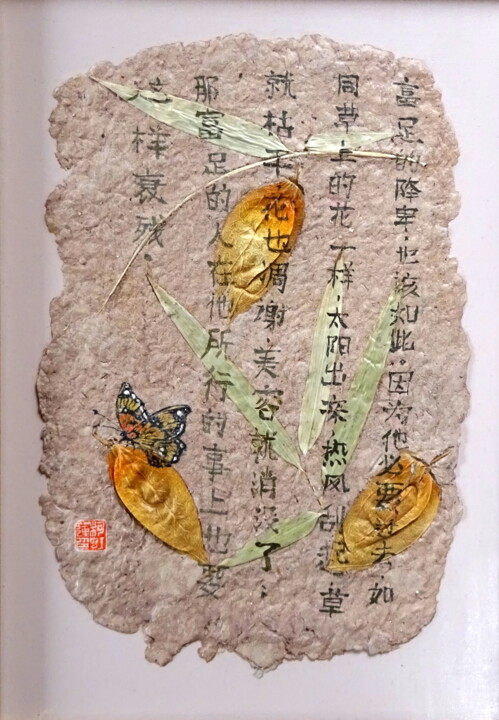 富足的降卑.也该如此。因为他必要过去.如
同草上的花一样.太阳出来热风刮起.草
就枯干.花也凋谢.美容就消没了:
那富足的人在他所行的事上也要
这样衰残.